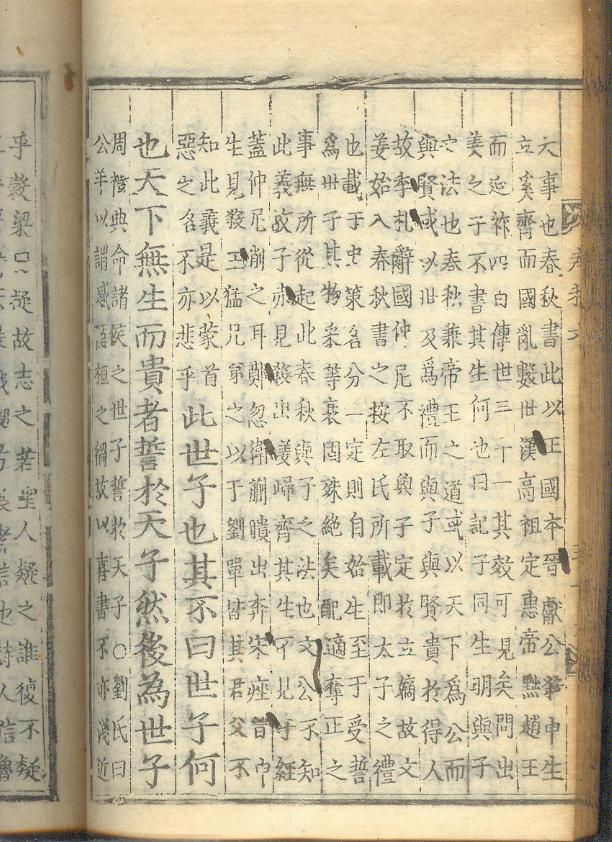 大事也春秋書此以正國本晉獻公弟申生
立奚齊而國亂數世漢高祖定惠帝黜趙王
而延祚四百傳世三十一其效可見矣問出
姜之子不書其生何也曰記子同生明與子
之法也春秋兼帝王之道或以天下為公而
與賢或以世及為禮而與子與賢貴於得人
故季札辭國仲尼不取與子定於立嫡故文
姜始入春秋書之按左氏所載即太子之禮
也載于史策名分一定則自始生至于受誓
為世子其物采等衰固殊絕矣配適奪正之
事無所從起此春秋與子之法也文公不知
此義故子赤見殺出姜歸齊其生不見于經
蓋仲尼削之耳鄭忽衛蒯聵出奔宋痤
生見殺王猛兄弟之以于劉單皆其君父不
知此義是以蒙首
惡之名不亦悲乎
此世子也其不曰世子何
也天下無生而貴者誓於天子然後為世子
周禮典命諸侯之世子誓於天子○劉氏曰
公羊以謂感隱桓之禍故以喜書不亦淺近
乎穀梁曰疑故志之若聖人疑之誰復不疑